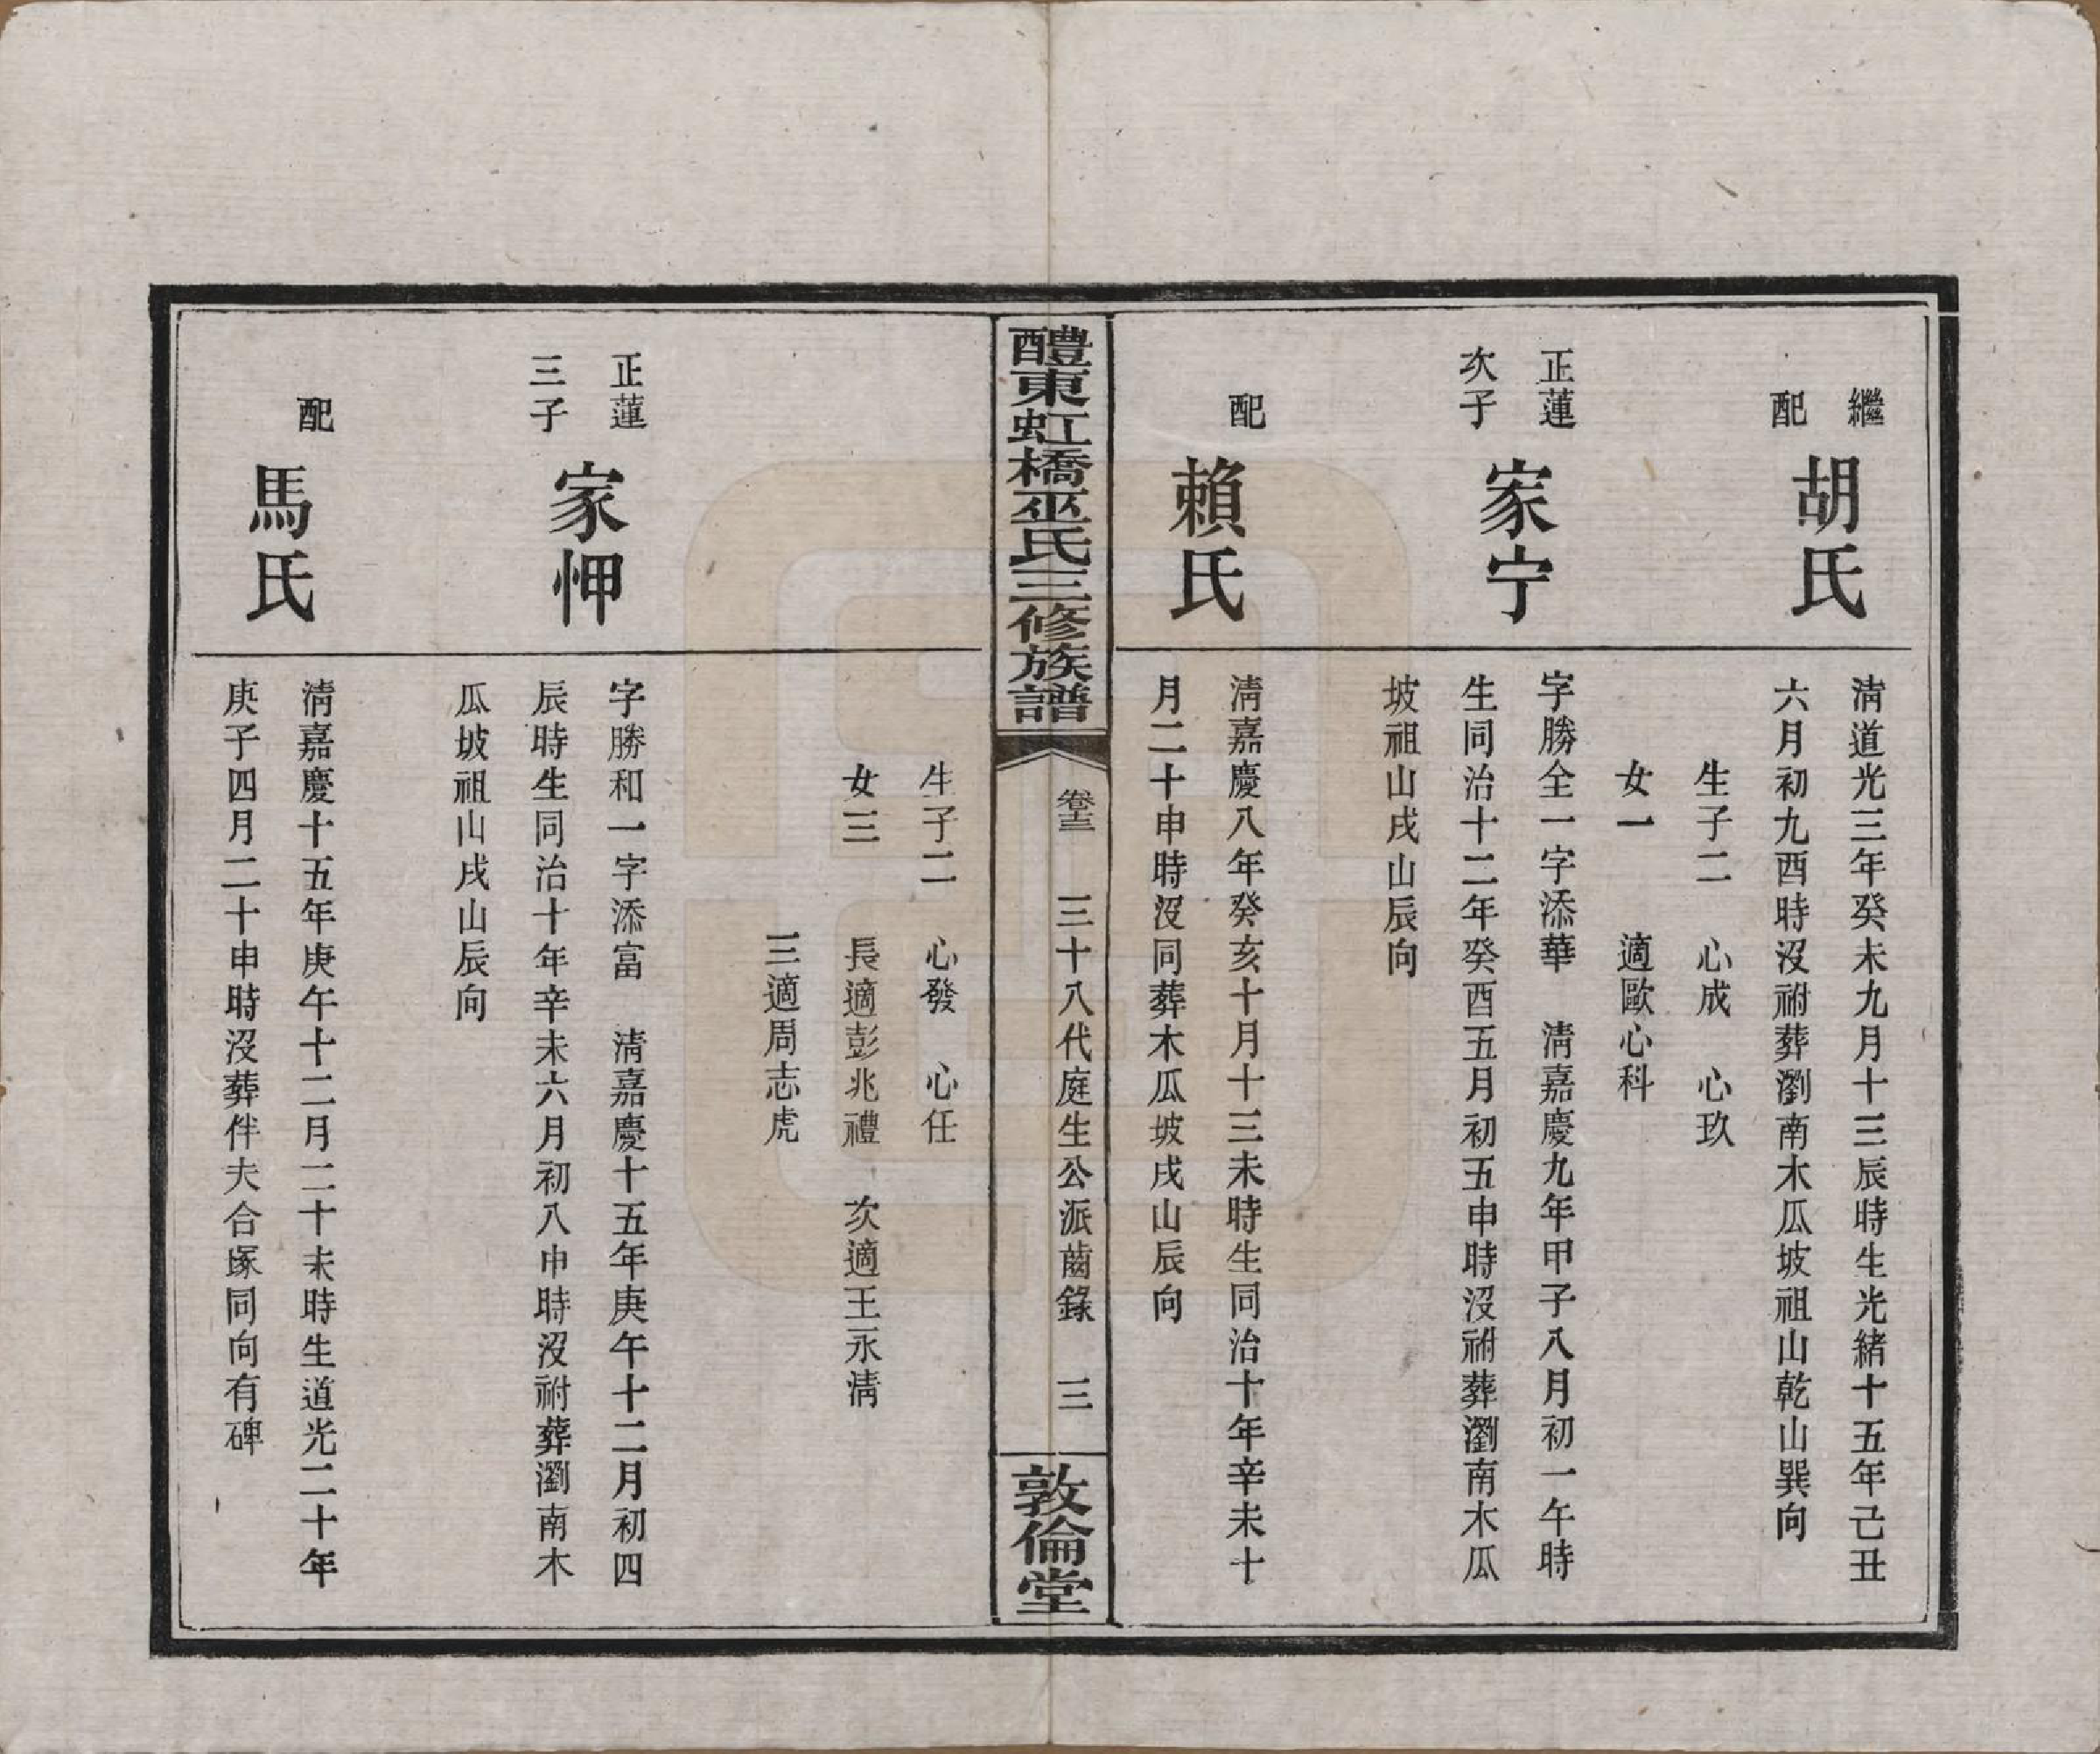 繼
配
胡氏
清道光三年癸未九月十三辰時生光緒十五年己丑
六月初九酉時沒祔葬瀏南木瓜坡祖山乾山巽向
生子二　心成　心玖
女一　適歐心科
正蓮
次子
家宁
字勝全一字添華　清嘉慶九年甲子八月初一午時
生同治十二年癸酉五月初五申時沒祔葬瀏南木瓜
坡祖山戌山辰向
配
賴氏
清嘉慶八年癸亥十月十三未時生同治十年辛未十
月二十申時沒同葬木瓜坡戌山辰向
醴東虹橋巫氏三修族譜
卷十三
三十八代庭生公派齒錄　三
敦倫堂
生子二　心發　心任
女三　長適彭兆禮　次適王永清
三適周志虎
正蓮
三子
家岬
字勝和一字添富　清嘉慶十五年庚午十二月初四
辰時生同治十年辛未六月初八申時沒祔葬瀏南木
瓜坡祖山戌山辰向
配
馬氏
清嘉慶十五年庚午十二月二十未時生道光二十年
庚子四月二十申時沒葬伴夫合塚同向有碑